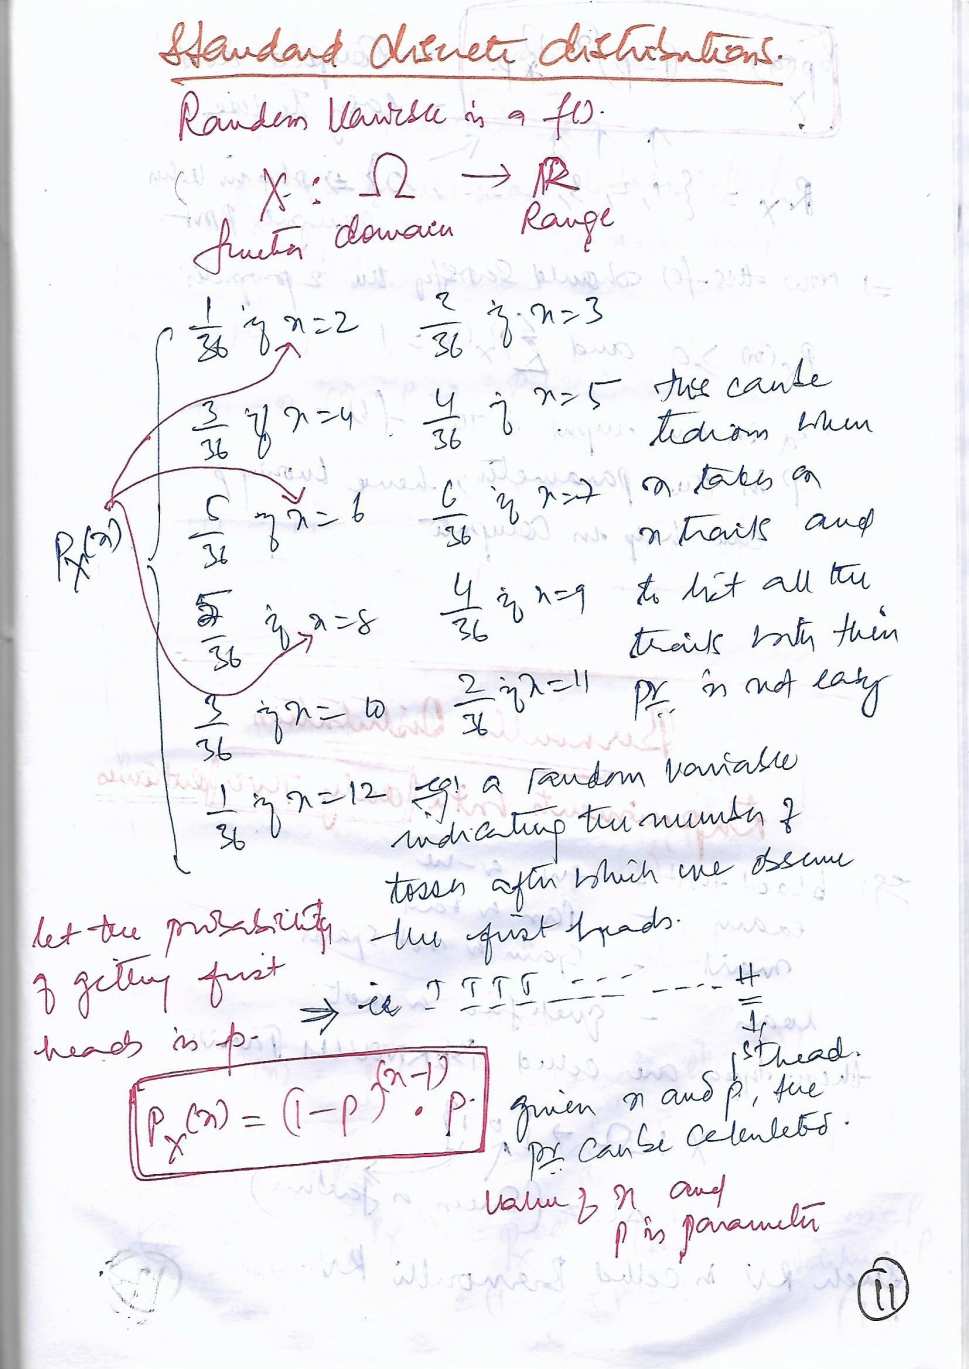 Standard discrete distributions.
Random Variable is a f().
X : Ω → ℝ
function domain Range
1/36 if x=2 2/36 if x=3
3/36 if x=4 4/36 if x=5
5/36 if x=6 6/36 if x=7
P_X(x)
5/36 if x=8 4/36 if x=9
3/36 if x=10 2/36 if x=11
1/36 if x=12
this can be
tedious when
x takes on
n trails and
to list all the
trails with their
pr. is not easy
eg: a random variable
indicating the number of
tosses after which we observe
the first heads.
let the probability
of getting first
heads is p.
⇒ ie T T T T --- ---- H
1st head.
P_X(x) = (1-p)^(x-1) · p.
given x and p, the
pr can be calculated.
value of x and
p is parameter
11